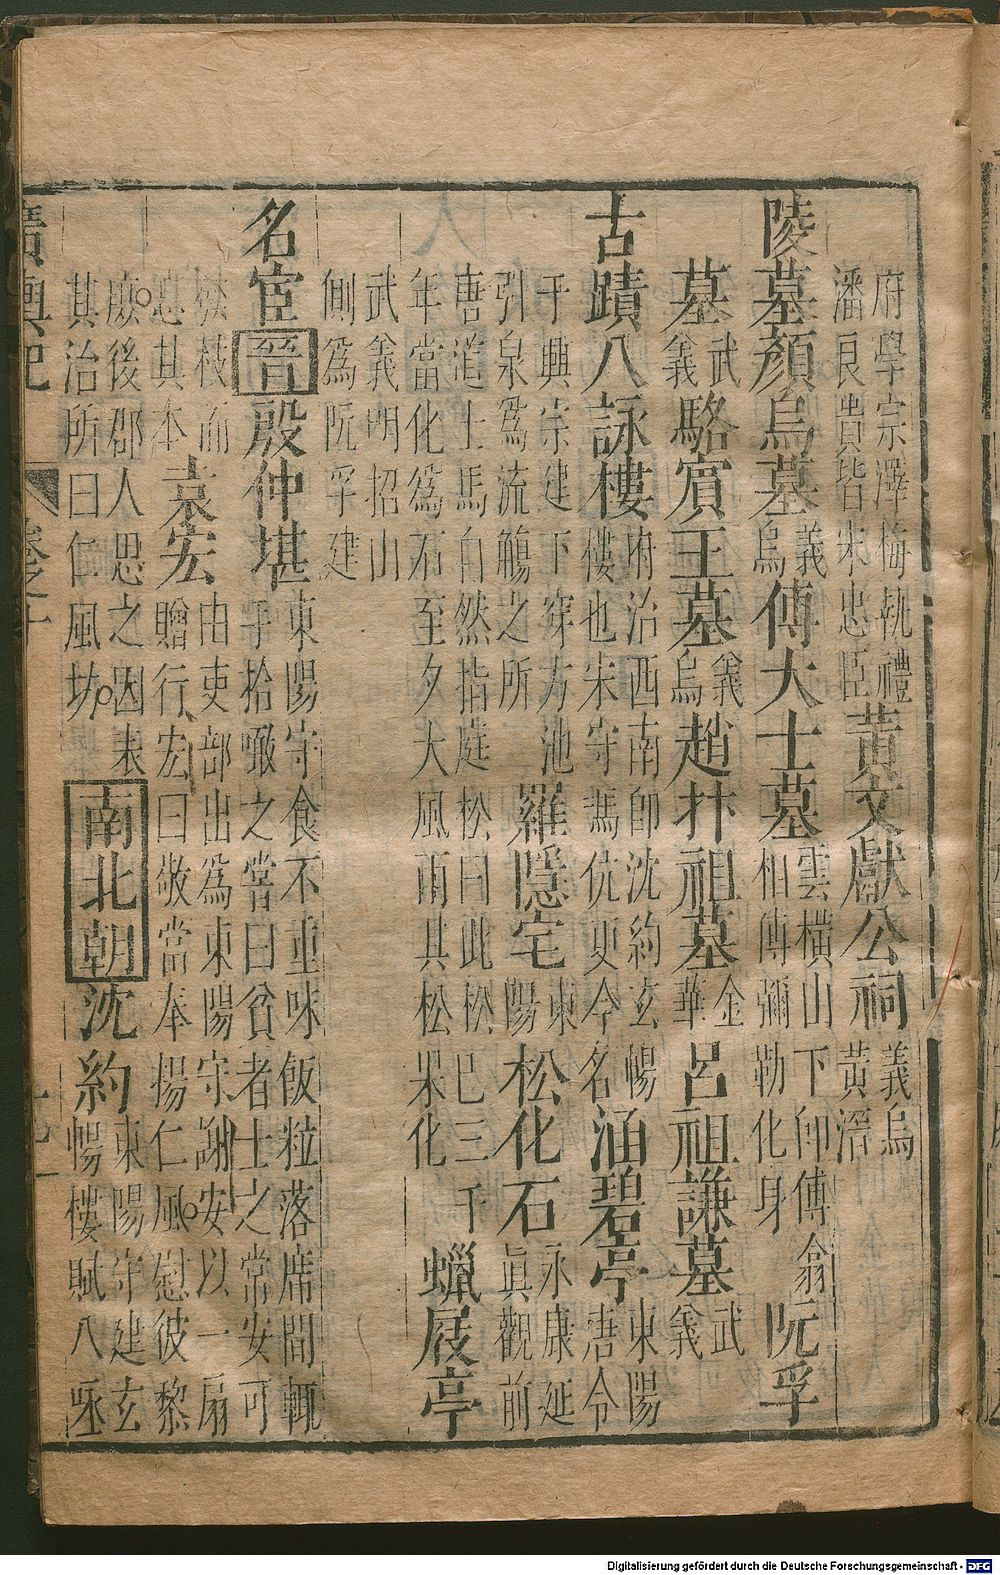 府學宗澤梅執禮潘良貴皆宋忠臣黃文獻公祠義烏黃溍
陵墓顏烏墓義烏傅大士墓雲橫山下卽傅翕相傳彌勒化身阮孚
墓武義駱賓王墓義烏趙抃祖墓金華呂祖謙墓武義
古蹟八詠樓府治西南卽沈約玄暢樓也宋守馮伉更今名涵碧亭東陽唐令
于興宗建下穿方池引泉爲流觴之所羅隱宅東陽松化石永康延眞觀前
唐道士馬自然指庭松曰此松已三千年當化爲石至夕大風雨其松果化蠟屐亭
武義明招山側爲阮孚建
名宦晉殷仲堪東陽守食不重味飯粒落席間輒手拾噉之嘗曰貧者士之常安可
登枝而忘其本袁宏由吏部出爲東陽守謝安以一扇贈行宏曰敬當奉揚仁風慰彼黎
庶後郡人思之因表其治所曰仁風坊南北朝沈約東陽守建玄暢樓賦八詠
廣輿記 卷之十
Digitalisierung gefördert durch die Deutsche Forschungsgemeinschaft - DFG